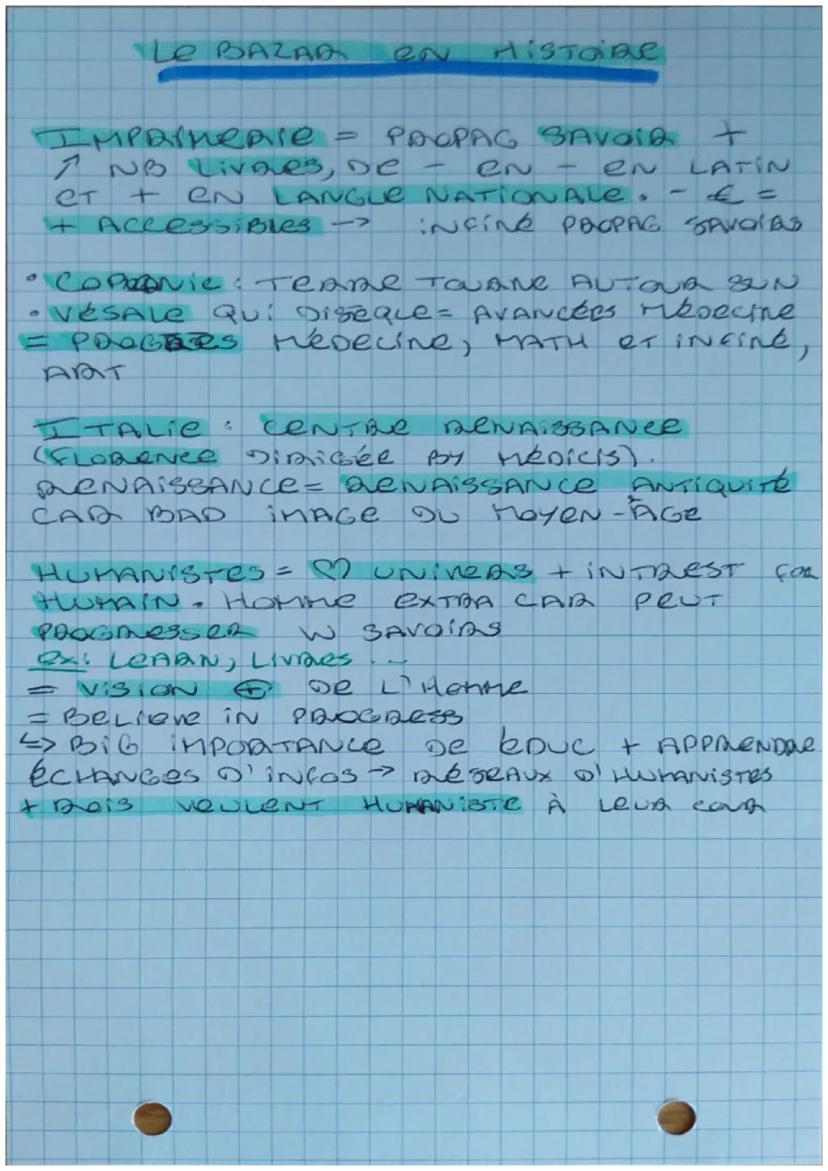 LE BAZAR EN HISTOIRE
IMPRIMERIE = PROPAG SAVOIR +
↑ NB LIVRES, DE - EN - EN LATIN
ET + EN LANGUE NATIONALE. - € =
+ ACCESSIBLES -> INFINÉ PROPAG SAVOIRS
• COPERNIC : TERRE TOURNE AUTOUR SUN
• VÉSALE QUI DISÈQUE = AVANCÉES MÉDECINE
= PROGRES MÉDECINE, MATH ET INFINÉ,
ART
ITALIE : CENTRE RENAISSANCE
(FLORENCE DIRIGÉE BY MÉDICIS).
RENAISSANCE = RENAISSANCE ANTIQUITÉ
CAR BAD IMAGE DU MOYEN-ÂGE
HUMANISTES = ♡ UNIVERS + INTREST FOR
HUMAIN. HOMME EXTRA CAR PEUT
PROGRESSER W SAVOIRS
ex: LEARN, LIVRES ...
= VISION ⊕ DE L'HOMME
= BELIEVE IN PROGRESS
↳> BIG IMPORTANCE DE ÉDUC + APPRENDRE
ÉCHANGES D'INFOS -> RÉSEAUX D'HUMANISTES
+ ROIS VEULENT HUMANISTE À LEUR COUR